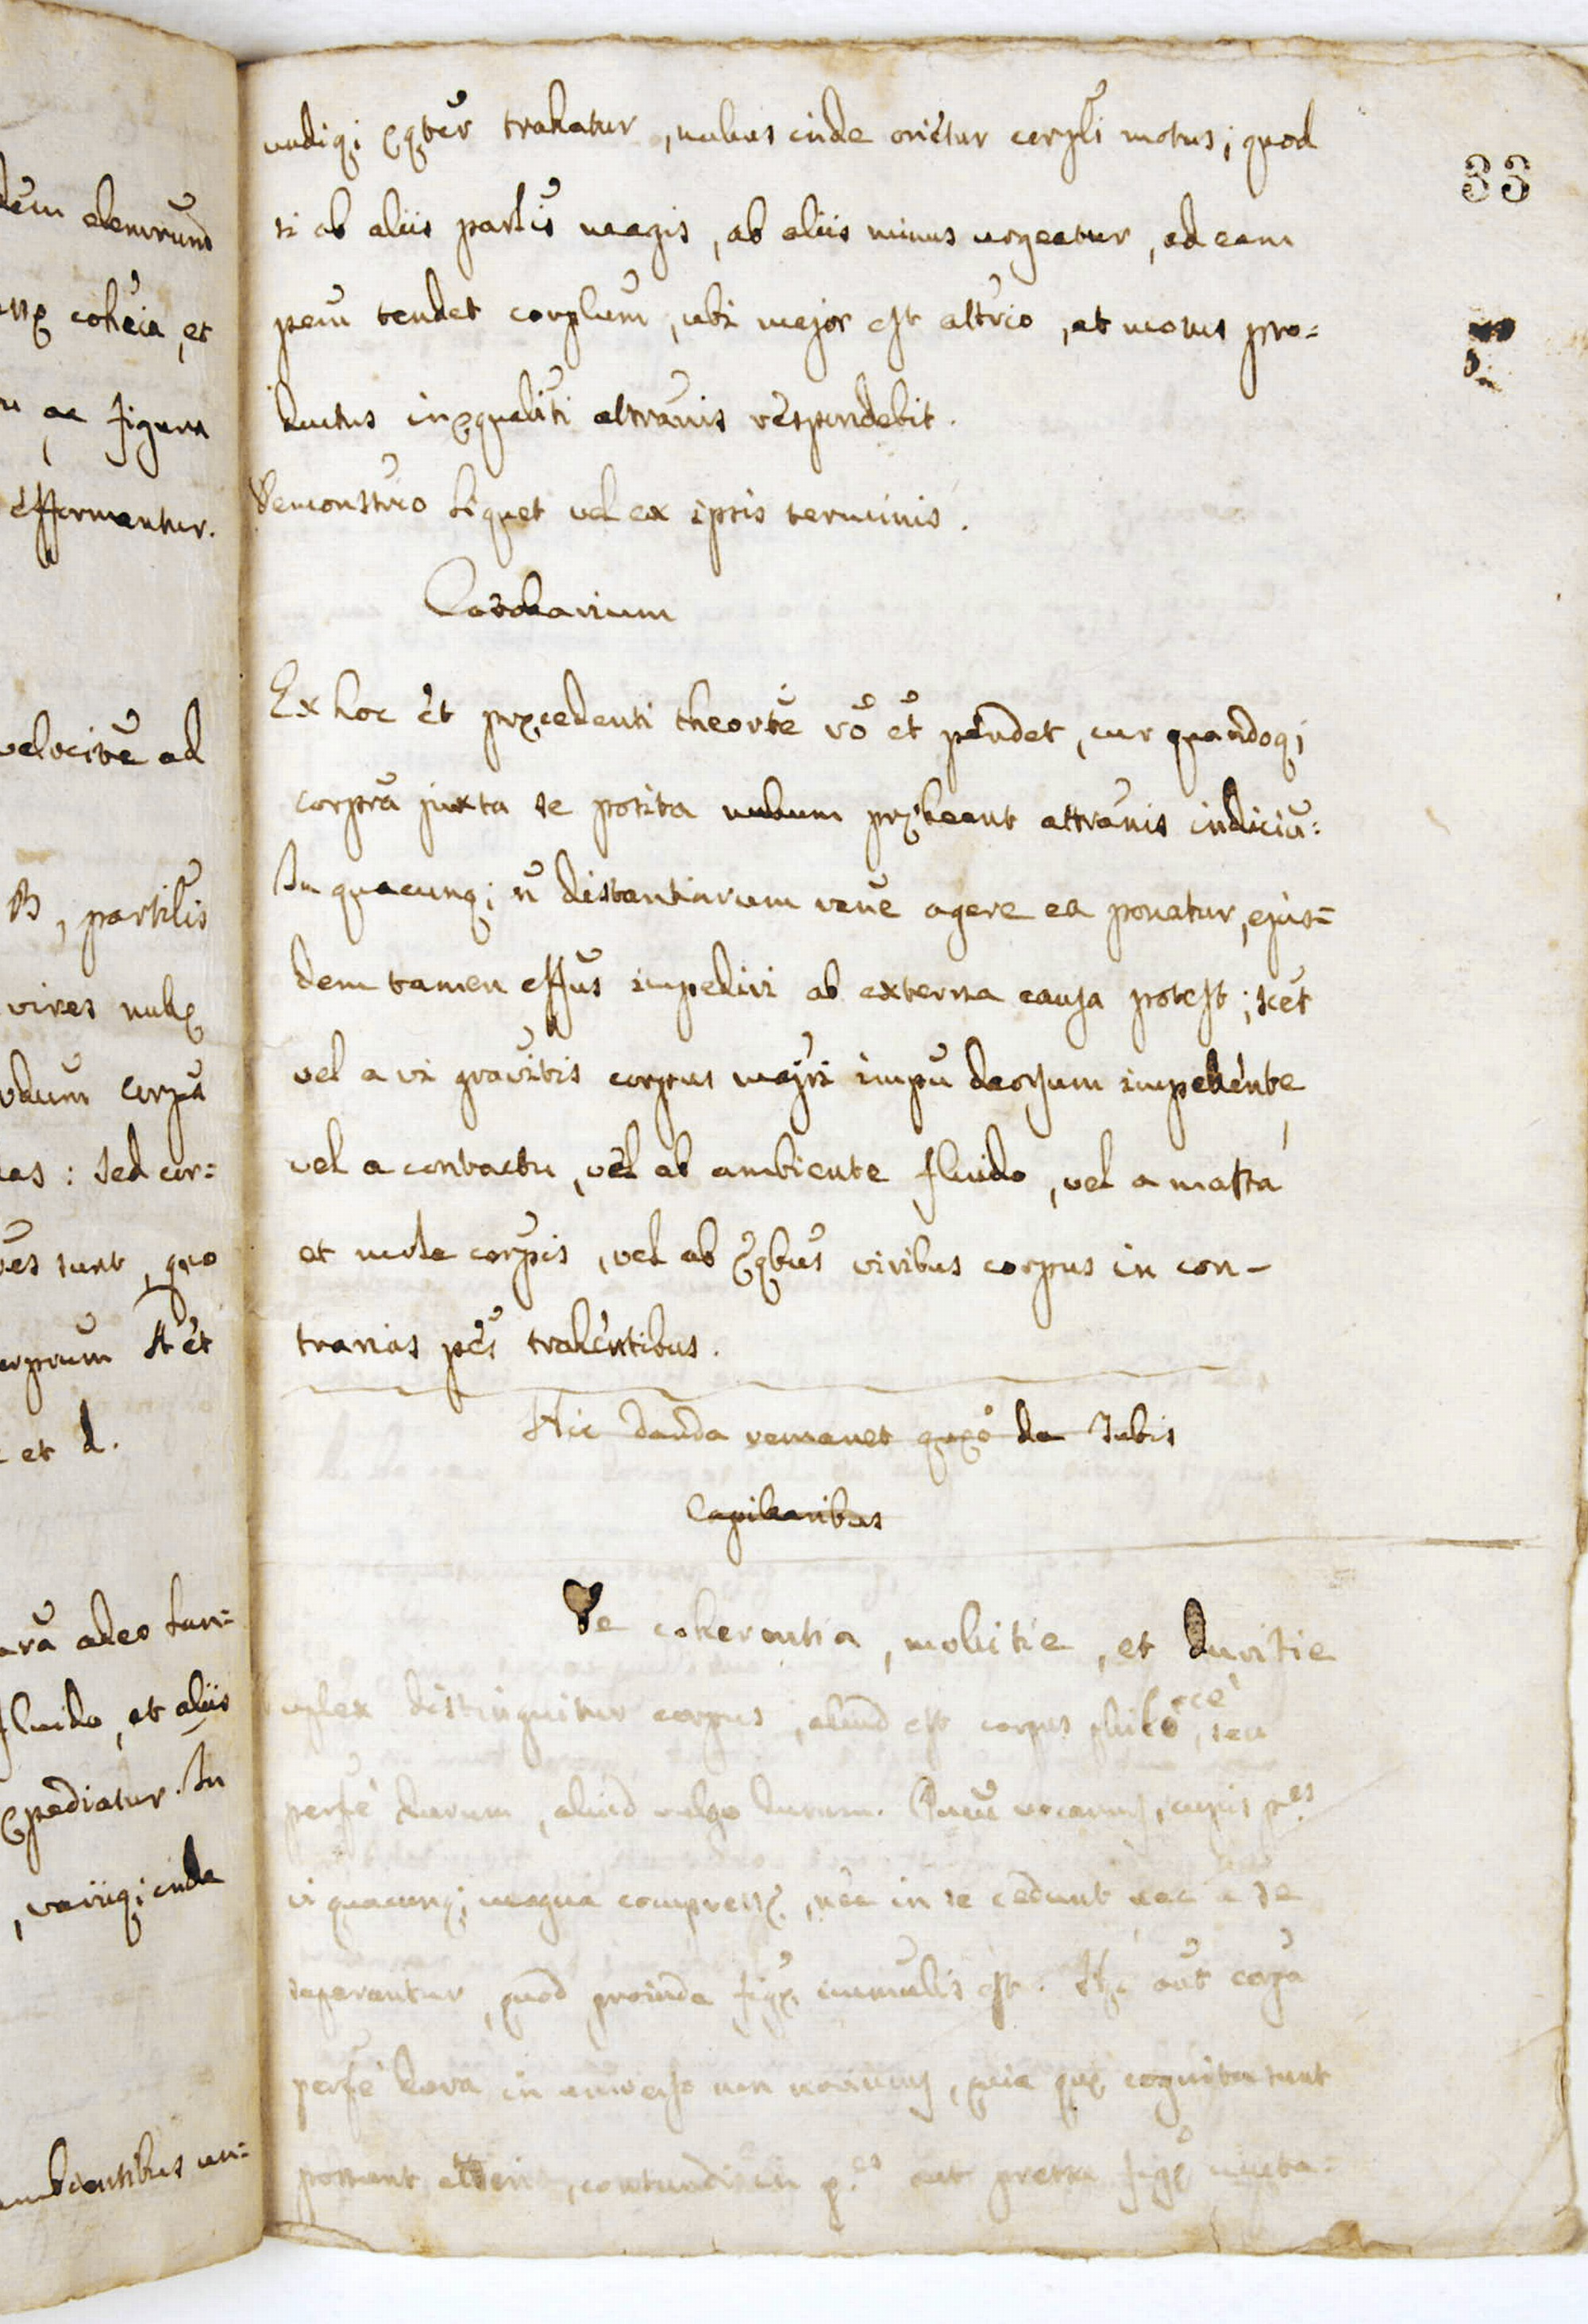 dem elemrum
coheia, et
ac figura
efformantur.
velocite ad
B, partilis
vires nulle
corpa
as: sed cor=
sunt, quo
A et
et d.
adeo lan=
fluido, et aliis
pediatur. In
, variiq; inde
ambientibus un=
33
undiq; ęqter trahatur, nullus inde orietur corpli motus; quod
si ab aliis partis magis, ab aliis minus urgeatur, ad eam
pem tendet corplum, ubi major est attrio, et motus pro=
ductus inęqualiti attranis respondebit.
Demonstrio liquet vel ex ipsis terminis.
Corollarium
Ex hoc et pręcedenti theorte ro et pendet, cur quandoq;
corpra juxta se posita nullum prębeant attranis indiciu:
In quacunq; n distantiarum rane agere ea ponatur, ejus=
dem tamen effus impediri ab externa causa potest; scet
vel a vi gravitis corpus majri impu deorsum impellente,
vel a contactu, vel ab ambiente fluido, vel a massa
et mole corpis, vel ab ęqbus viribus corpus in con-
trarias pes trahentibus.
Hic danda remanet quęo de Tubis
Capillaribus
De coherentia, mollitie, et duritie
uplex distinguitur corpus, aliud est corpus philocce, seu
perfe durum, aliud vulgo durum. vocamus, cujus pes
vi quacunq; magna compressę, nec in se cedunt nec a se
seperantur, quod proinde figę immutlis est. Hęc aut corpa
perfe dura in universo non novimus, quia quę cognita sunt
possunt atteri, contundi in pes aut pressa figę muta=